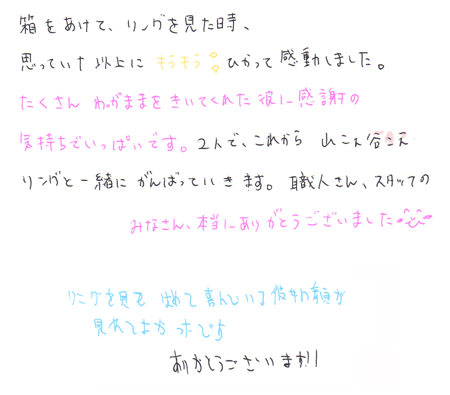 箱をあけて、リングを見た時、
思っていた以上に キラキラ ひかって感動しました。
たくさん わがままをきいてくれた彼に感謝の
気持ちでいっぱいです。2人で、これから 山こえ谷こえ
リングと一緒に がんばっていきます。職人さん、スタッフの
みなさん、本当にありがとうございました
リングを見て 改めて喜んでいる彼女の顔が
見れてよかったです
ありがとうございます!!